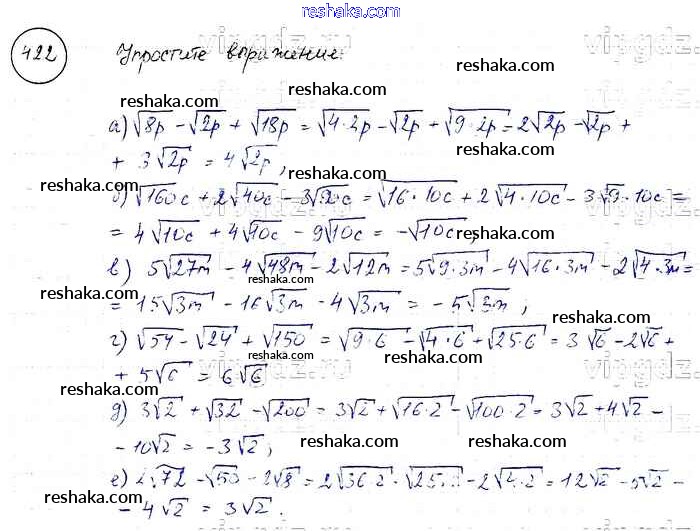 reshaka.com
422 Упростите выражение:
а) √8p − √2p + √18p = √4·2p − √2p + √9·2p = 2√2p − √2p +
+ 3√2p = 4√2p,
б) √160c + 2√40c − 3√90c = √16·10c + 2√4·10c − 3√9·10c =
= 4√10c + 4√10c − 9√10c = −√10c,
в) 5√27m − 4√48m − 2√12m = 5√9·3m − 4√16·3m − 2√4·3m =
= 15√3m − 16√3m − 4√3m = −5√3m;
г) √54 − √24 + √150 = √9·6 − √4·6 + √25·6 = 3√6 − 2√6 +
+ 5√6 = 6√6
д) 3√2 + √32 − √200 = 3√2 + √16·2 − √100·2 = 3√2 + 4√2 −
− 10√2 = −3√2;
е) 2√72 − √50 − 2√8 = 2√36·2 − √25·2 − 2√4·2 = 12√2 − 5√2 −
− 4√2 = 3√2.